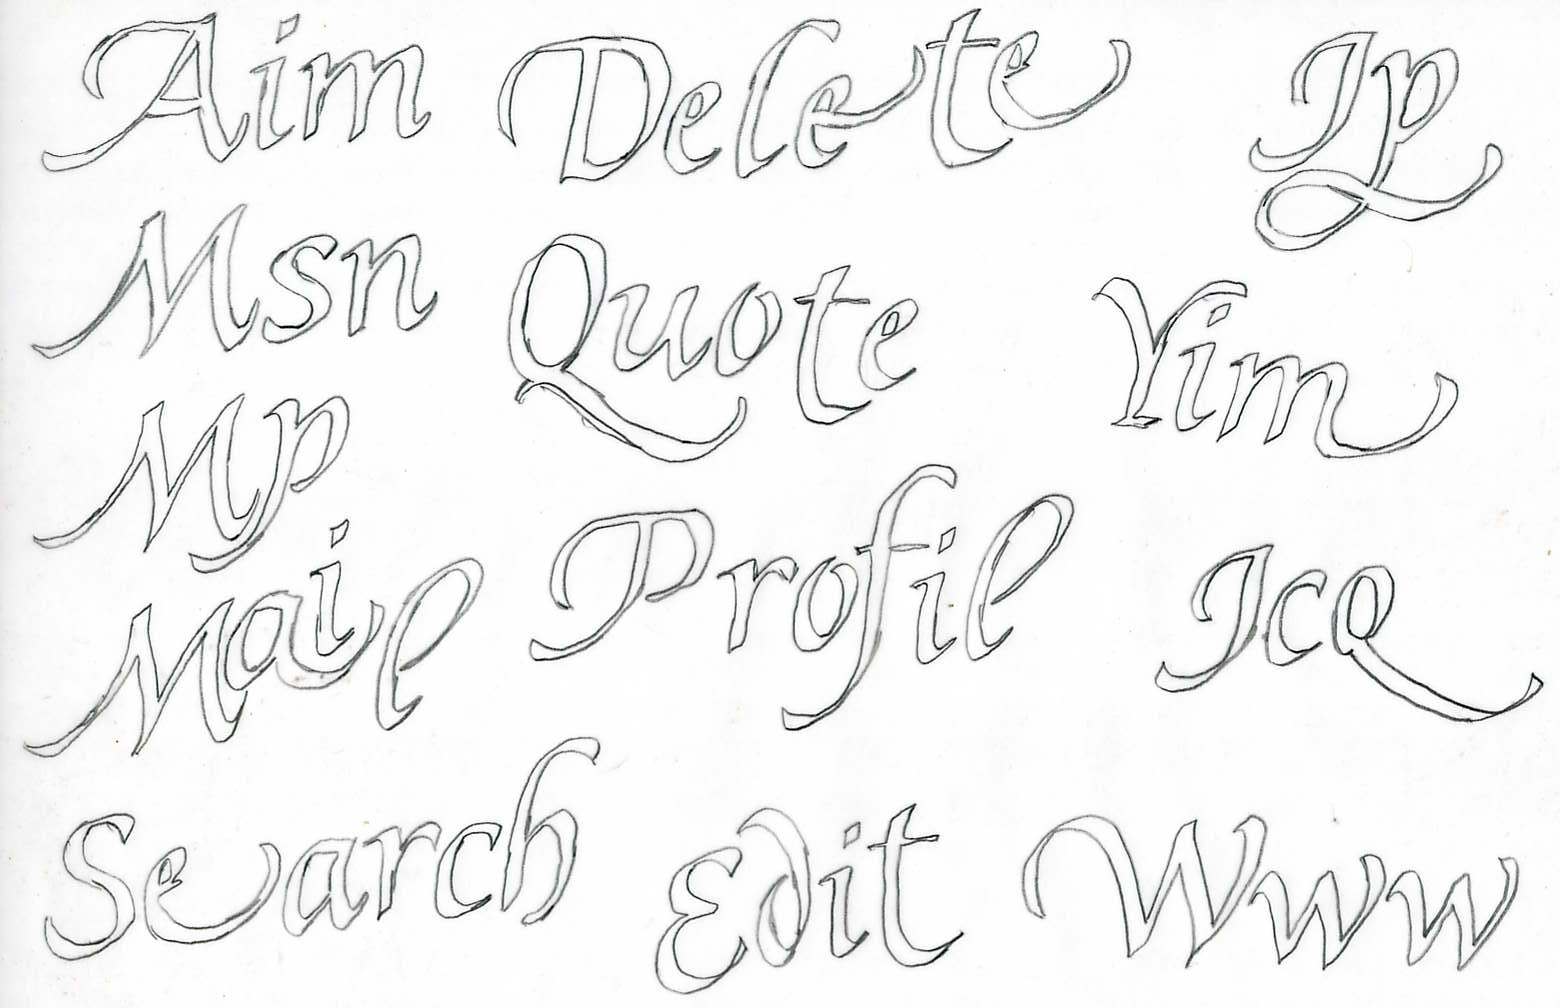 Aim Delete Ip
Msn Quote Yim
Mp Profil Icq
Mail
Search Edit Www